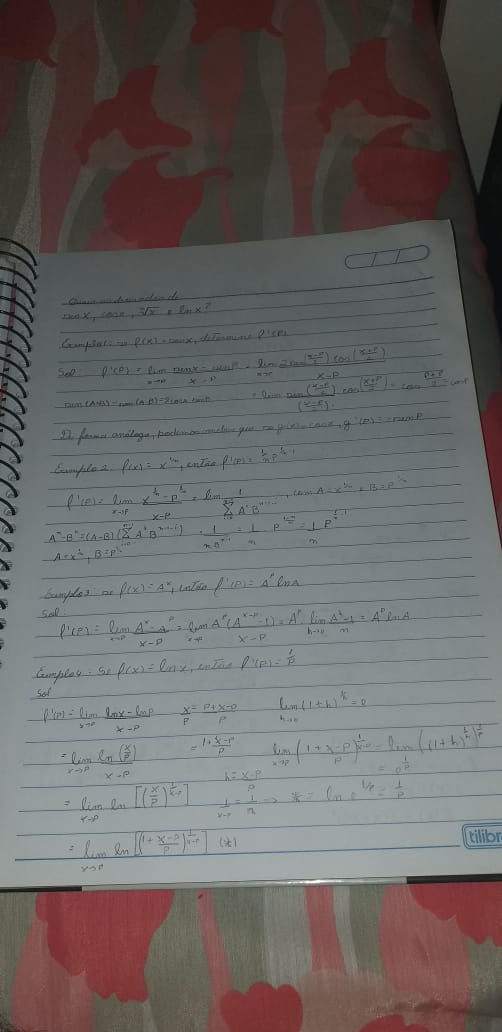 Quais as derivadas de
sen x, cos x, ⁿ√x e ln x?
Exemplo 1: se f(x) = sen x, determine f'(p)
Sol: f'(p) = lim x→p (sen x - sen p)/(x-p) = lim x→p 2 sen((x-p)/2) cos((x+p)/2)/(x-p)
sen(A+B) - sen(A-B) = 2 cos A sen B = lim sen((x-p)/2)/((x-p)/2) cos((x+p)/2) = cos (p+p)/2 = cos p
De forma análoga, podemos que se g(x) = cos x, g'(p) = -sen p
Exemplo 2: f(x) = x^(1/n), então f'(p) = 1/n p^(1/n - 1)
f'(p) = lim x→p (x^(1/n) - p^(1/n))/(x-p) = lim 1/(Σ A^i B^(n-1-i)), com A = x^(1/n) e B = p^(1/n)
Aⁿ-Bⁿ = (A-B)(Σ A^i B^(n-1-i)) = 1/(n B^(n-1)) = 1/n p^((1-n)/n) = 1/n p^(1/n - 1)
A = x^(1/n), B = p^(1/n)
Exemplo 3: se f(x) = A^x, então f'(p) = A^p ln A
Sol:
f'(p) = lim x→p (A^x - A^p)/(x-p) = lim x→p A^p(A^(x-p) - 1)/(x-p) = A^p lim h→0 (A^h - 1)/h = A^p ln A
Exemplo 4: Se f(x) = ln x, então f'(p) = 1/p
Sol
f'(p) = lim x→p (ln x - ln p)/(x-p) x/p = (p+x-p)/p lim h→0 (1+h)^(1/h) = e
= lim x→p ln(x/p)/(x-p) = 1 + (x-p)/p lim x→p (1 + (x-p)/p)^(1/(x-p)) = lim ((1+h)^(1/h))^(1/p)
h = (x-p)/p = e^(1/p)
= lim x→p ln[(x/p)^(1/(x-p))] 1/(x-p) = 1/(ph) ⇒ * = ln e^(1/p) = 1/p
= lim x→p ln[(1 + (x-p)/p)^(1/(x-p))] (*)
tilibra